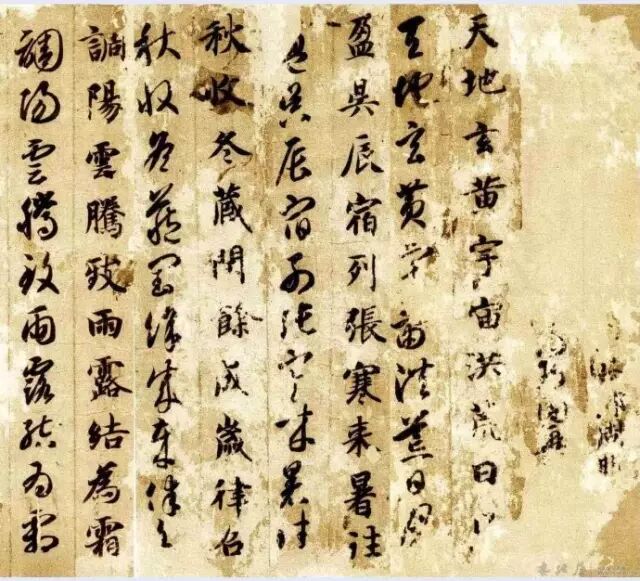 天地玄黄宇宙洪荒日
天地玄黄宇宙洪荒日月
盈昃辰宿列張寒来暑往
盈昃辰宿列張寒来暑往
秋收冬藏閏餘成歲律呂
秋收冬藏閏餘成歲律呂
調陽雲騰致雨露結為霜
調陽雲騰致雨露結為霜